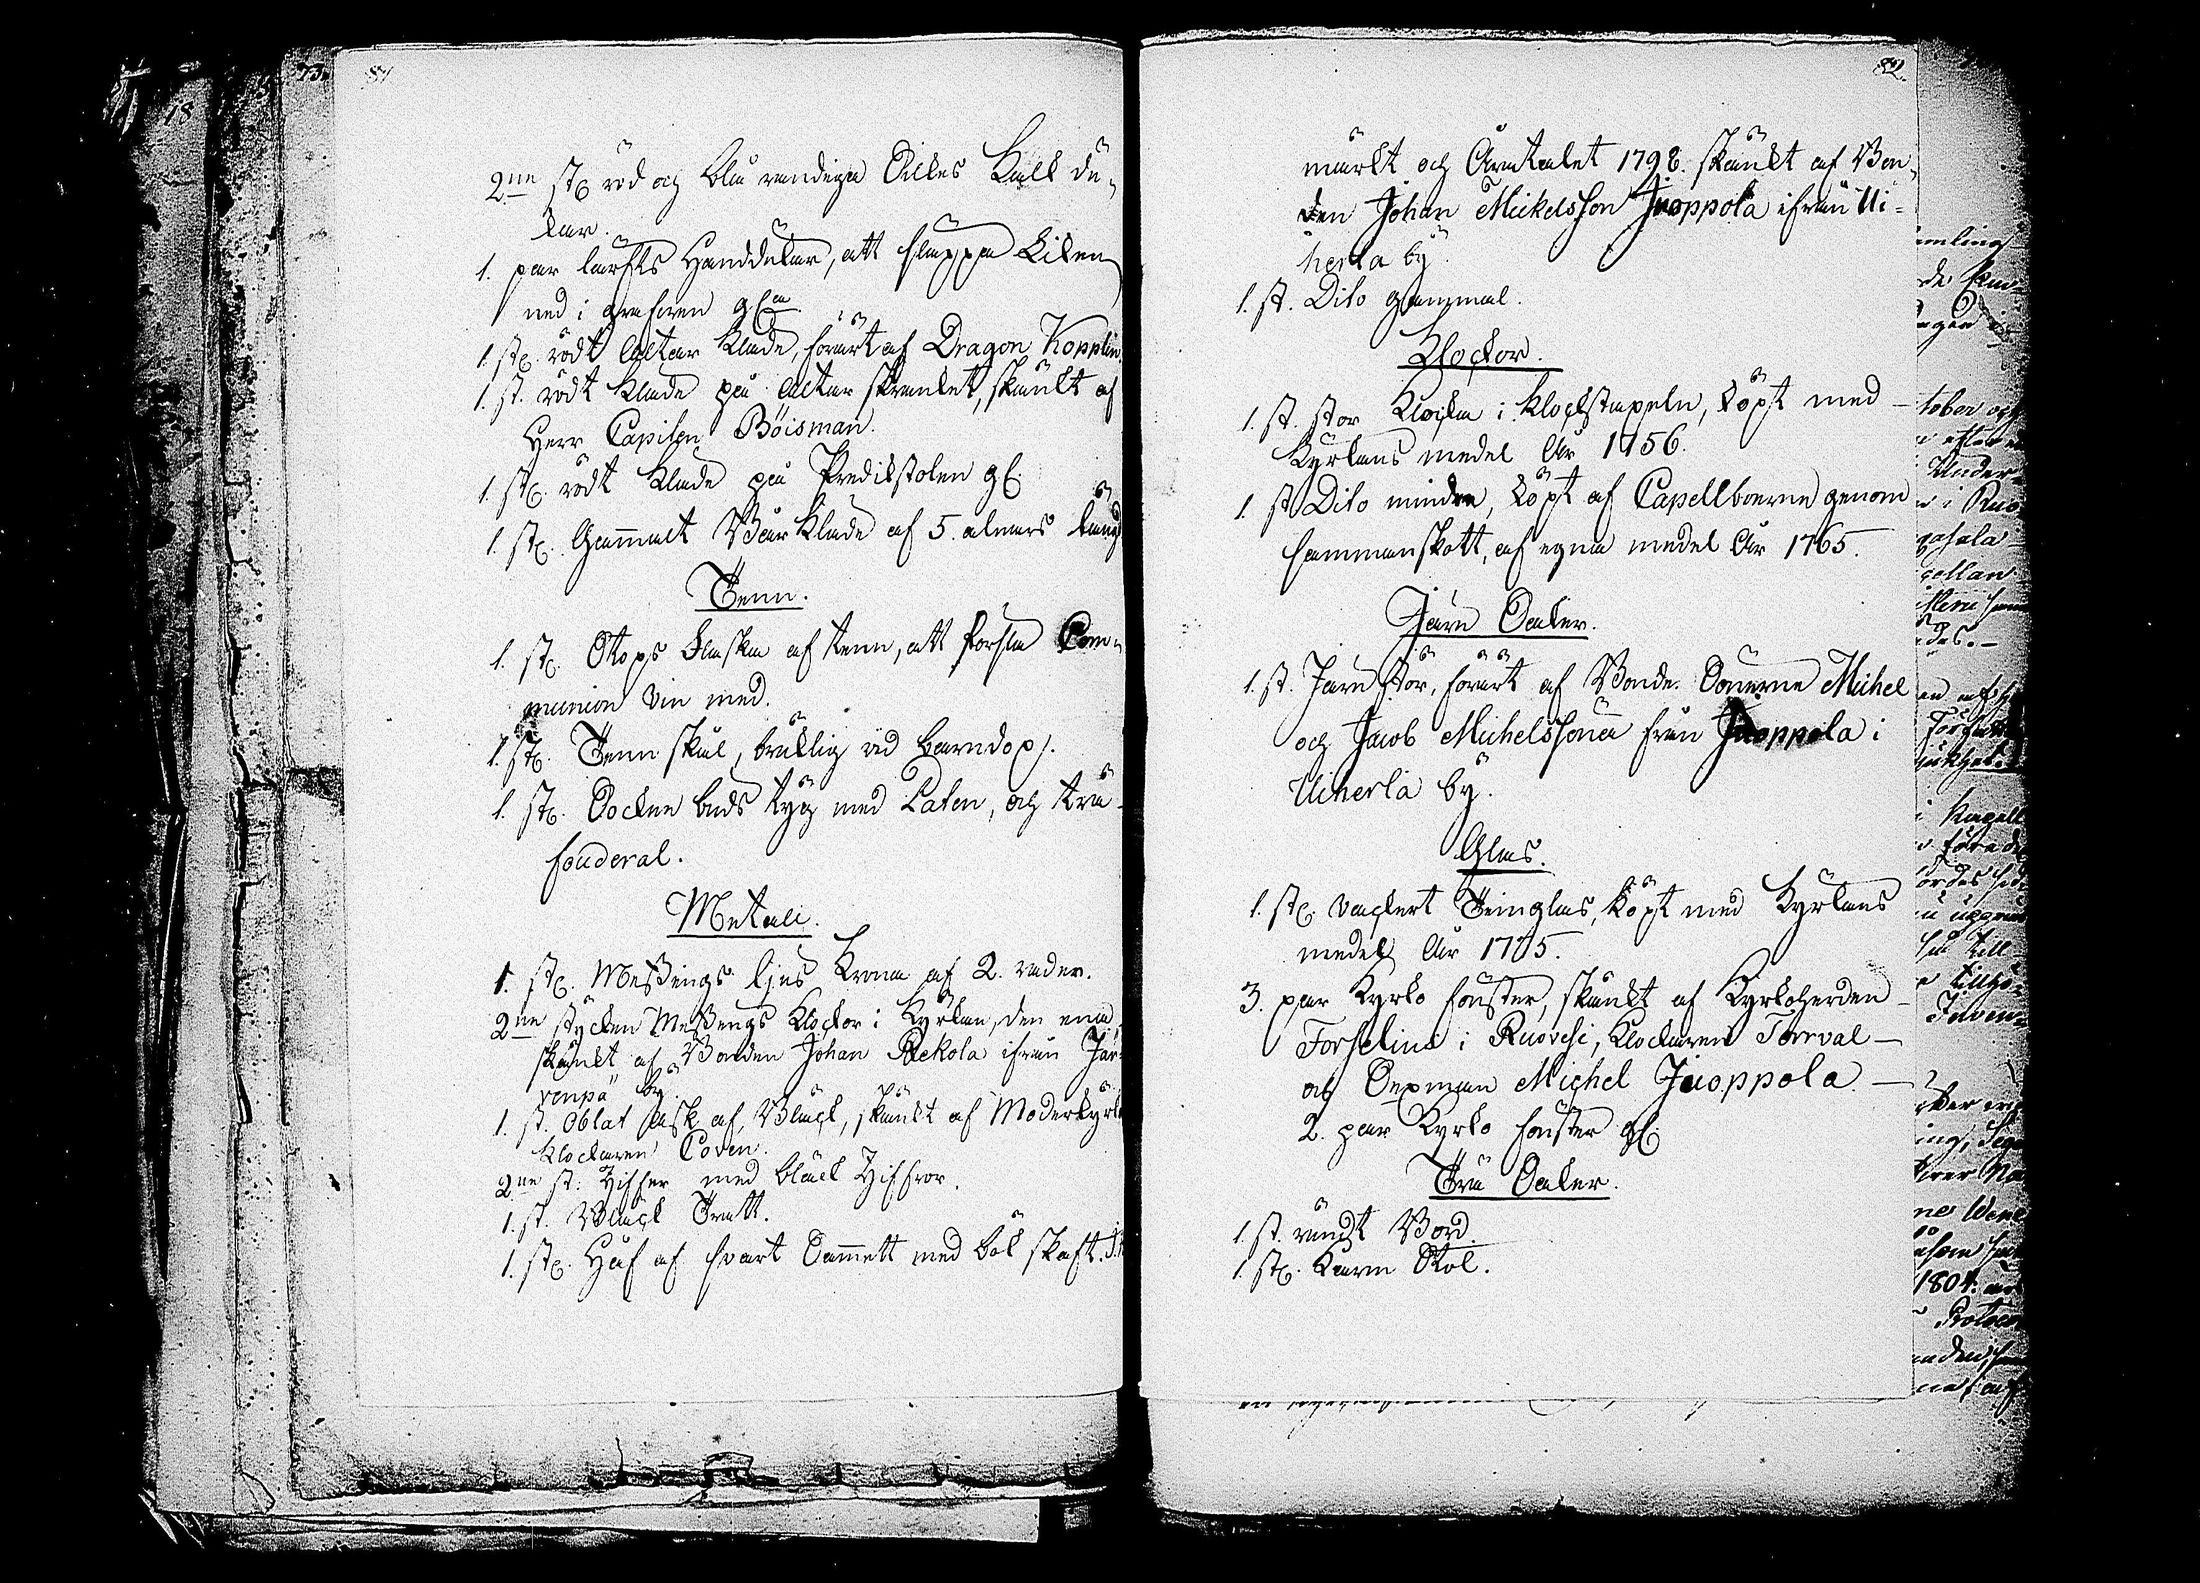 81
2ne st. röd og blå randiga Silkes Kalk du-
kar.
1. par lärfts Handdukar, att släppa Liken
ned i grafven gl.
1. st. rödt Altar Kläde, förärt af Dragon Kopplin
1. st. rödt Kläde på Altar skranket, skänkt af
Herr Capiten Böisman.
1. st. rödt Kläde på Predikstolen gl.
1. st. Gammalt Bår Kläde af 5. alnars längd
Tenn.
1. st. Stops flaska af tenn, att forsla Com-
munion Vin med.
1. st. Tenn skål, bruklig vid barndop.
1. st. Sockne buds tyg med Paten, og trä
fouderal.
Metall.
1. st. Messings ljus Krona af 2. rader.
2ne stycken Messings Klockor i Kyrkan, den ena
skänkt af Bonden Johan Rekola ifrån Jär-
venpä by
1. st. Oblat ask af Bläck, skänkt af Moderkyrko
Klockaren Coven.
2ne st. Ziffer med bläck Ziffror.
1. st. Bläck Tratt.
1. st. Håf af svart Sammett med båk skaft.
82.
märkt og Åratalet 1798. skänkt af Bon-
den Johan Mickelsson Juoppola ifrån Ui-
herla by.
1. st. Dito gammal.
Klockor.
1. st. stor Klocka i Klockstapeln, köpt med
Kyrkans medel År 1756.
1. st Dito mindre, köpt af Capellboerne genom
sammanskott, af egna medel År 1765.
Järn Saker.
1. st. Järn stör, förärt af Bonde Sönerne Michel
og Jacob Michelssöner från Juoppola i
Uiherla by.
Glas.
1. st. vackert Timglas, köpt med Kyrkans
medel År 1775.
3. par Kyrko fönster, skänkt af Kyrkoherden
Forselius i Ruovesi, Klockaren Torrval
og Sexman Michel Juoppola
2. par Kyrko fönster gl.
Trä Saker.
1. st. rundt Bord.
1. st. Karm Stol.